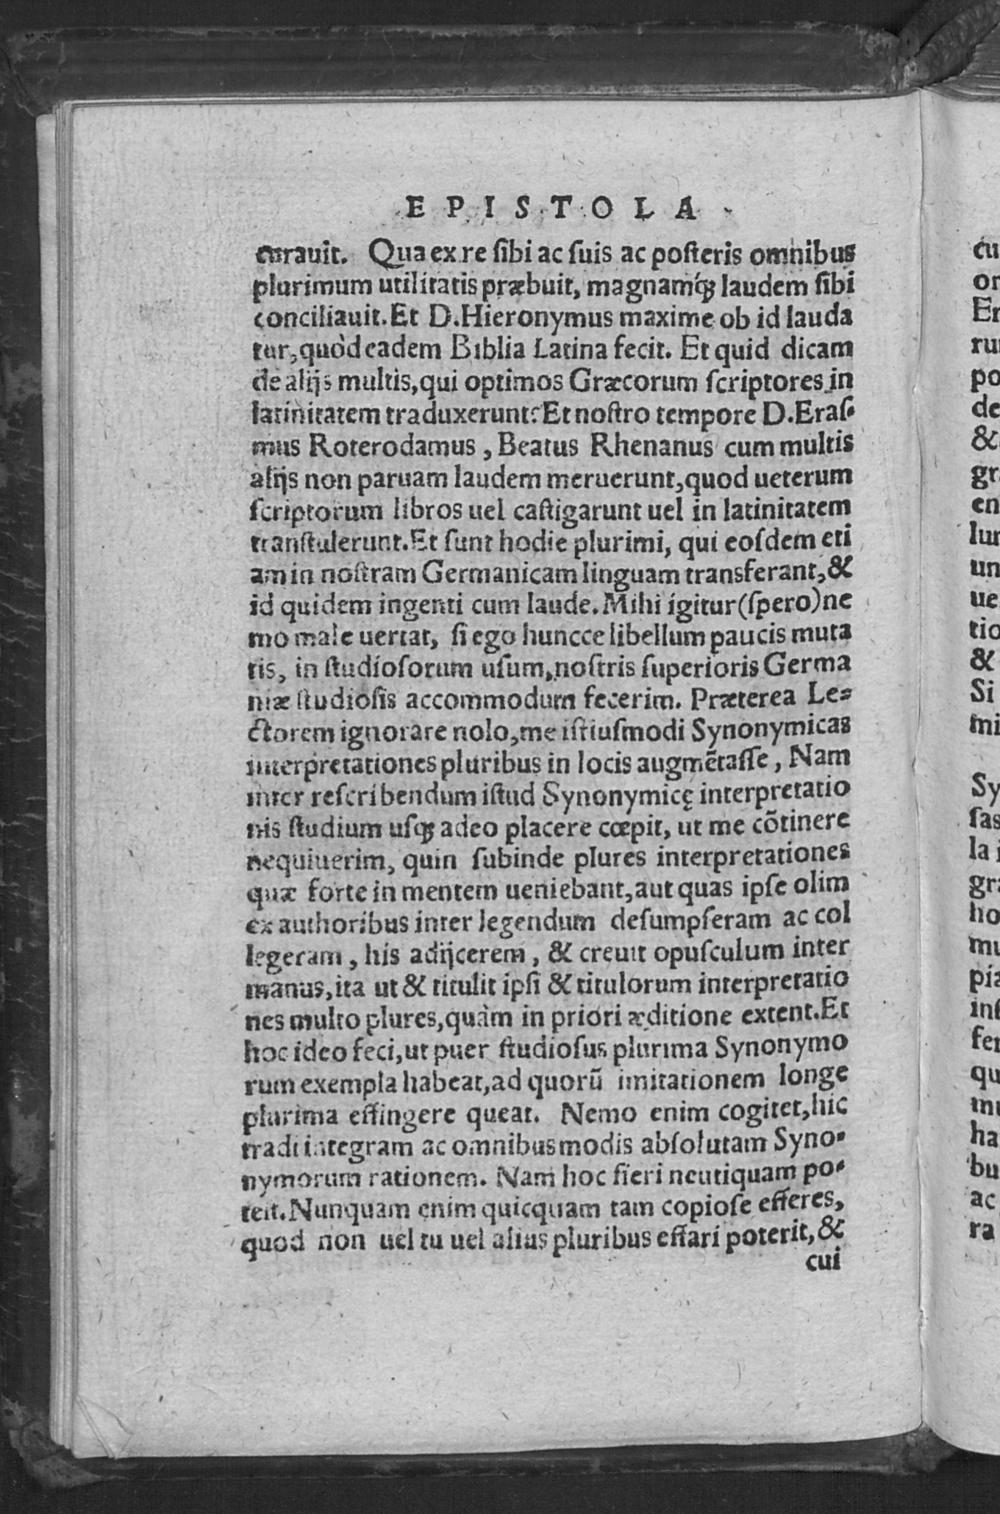 EPISTOLA
curauit. Qua ex re ſibi ac ſuis ac poſteris omnibus
plurimum utilitatis præbuit, magnamq́ꝫ laudem ſibi
conciliauit. Et D. Hieronymus maxime ob id lauda
tur, quòd eadem Biblia Latina fecit. Et quid dicam
de alijs multis, qui optimos Græcorum ſcriptores in
latinitatem traduxerunt? Et noſtro tempore D. Eraſ-
mus Roterodamus, Beatus Rhenanus cum multis
alijs non paruam laudem meruerunt, quod ueterum
ſcriptorum libros uel caſtigarunt uel in latinitatem
tranſtulerunt. Et ſunt hodie plurimi, qui eoſdem eti
am in noſtram Germanicam linguam transferant, &
id quidem ingenti cum laude. Mihi igitur (ſpero) ne
mo male uertat, ſi ego huncce libellum paucis muta
tis, in ſtudioſorum uſum, noſtris ſuperioris Germa
niæ ſtudioſis accommodum fecerim. Præterea Le-
ctorem ignorare nolo, me iſtiuſmodi Synonymicas
interpretationes pluribus in locis augmẽtaſſe, Nam
inter reſcribendum iſtud Synonymicę interpretatio
nis ſtudium uſqꝫ adeo placere cœpit, ut me cõtinere
nequiuerim, quin ſubinde plures interpretationes
quæ forte in mentem ueniebant, aut quas ipſe olim
ex authoribus inter legendum deſumpſeram ac col
legeram, his adijcerem, & creuit opuſculum inter
manus, ita ut & tituli ipſi & titulorum interpretatio
nes multo plures, quàm in priori æditione extent. Et
hoc ideo feci, ut puer ſtudioſus plurima Synonymo
rum exempla habeat, ad quorũ imitationem longe
plurima effingere queat. Nemo enim cogitet, hic
tradi integram ac omnibus modis abſolutam Syno-
nymorum rationem. Nam hoc fieri neutiquam po-
teit. Nunquam enim quicquam tam copioſe efferes,
quod non uel tu uel alius pluribus effari poterit, &
cui
cu
or
Er
ru
po
de
&
gr
en
lur
un
ue
tio
&
Si
mi
Sy
ſas
la i
gra
ho
mu
pia
int
fer
qu
mu
ha
bu
ac
ra